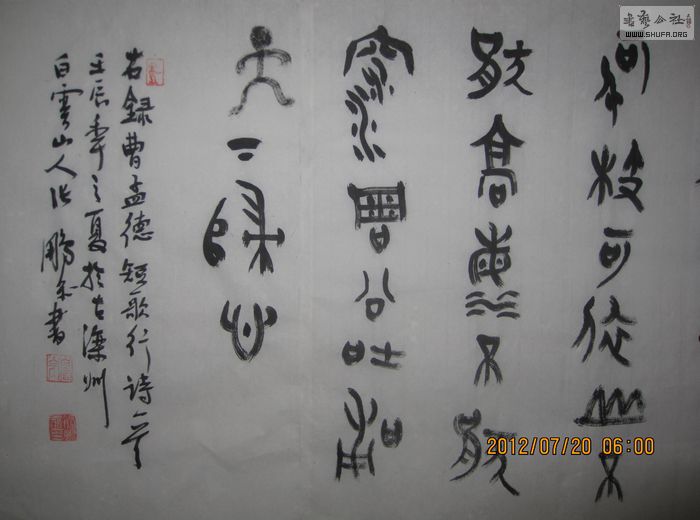 書藝公社
WWW.SHUFA.ORG
何枝可依山不
厭高海不厭
深周公吐哺
天下歸心
右録曹孟德短歌行詩一首
壬辰年之夏於古州
白雲山人張鵬書
2012/07/20 06:00